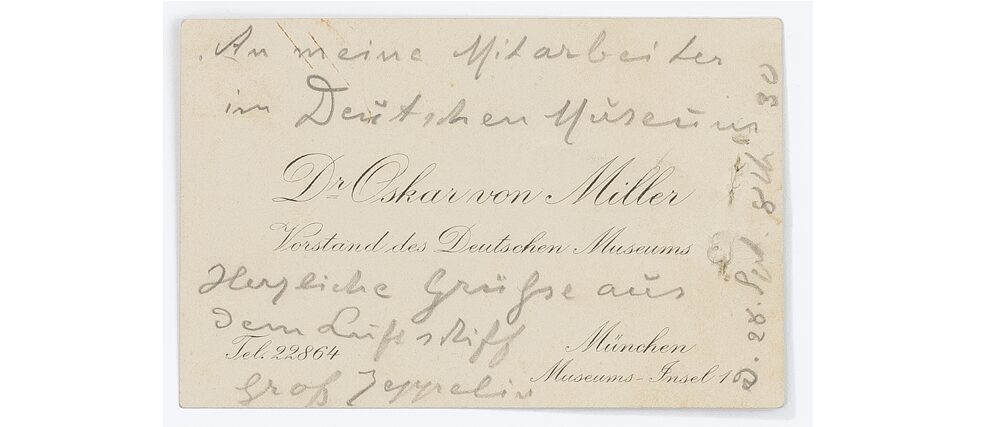 An meine Mitarbeiter
im Deutschen Museum
Dr Oskar von Miller
Vorstand des Deutschen Museums
Herzliche Grüße aus
dem Luftschiff
Tel. 22864
München
Groß Zeppelin
Museums-Insel 1
28. 30